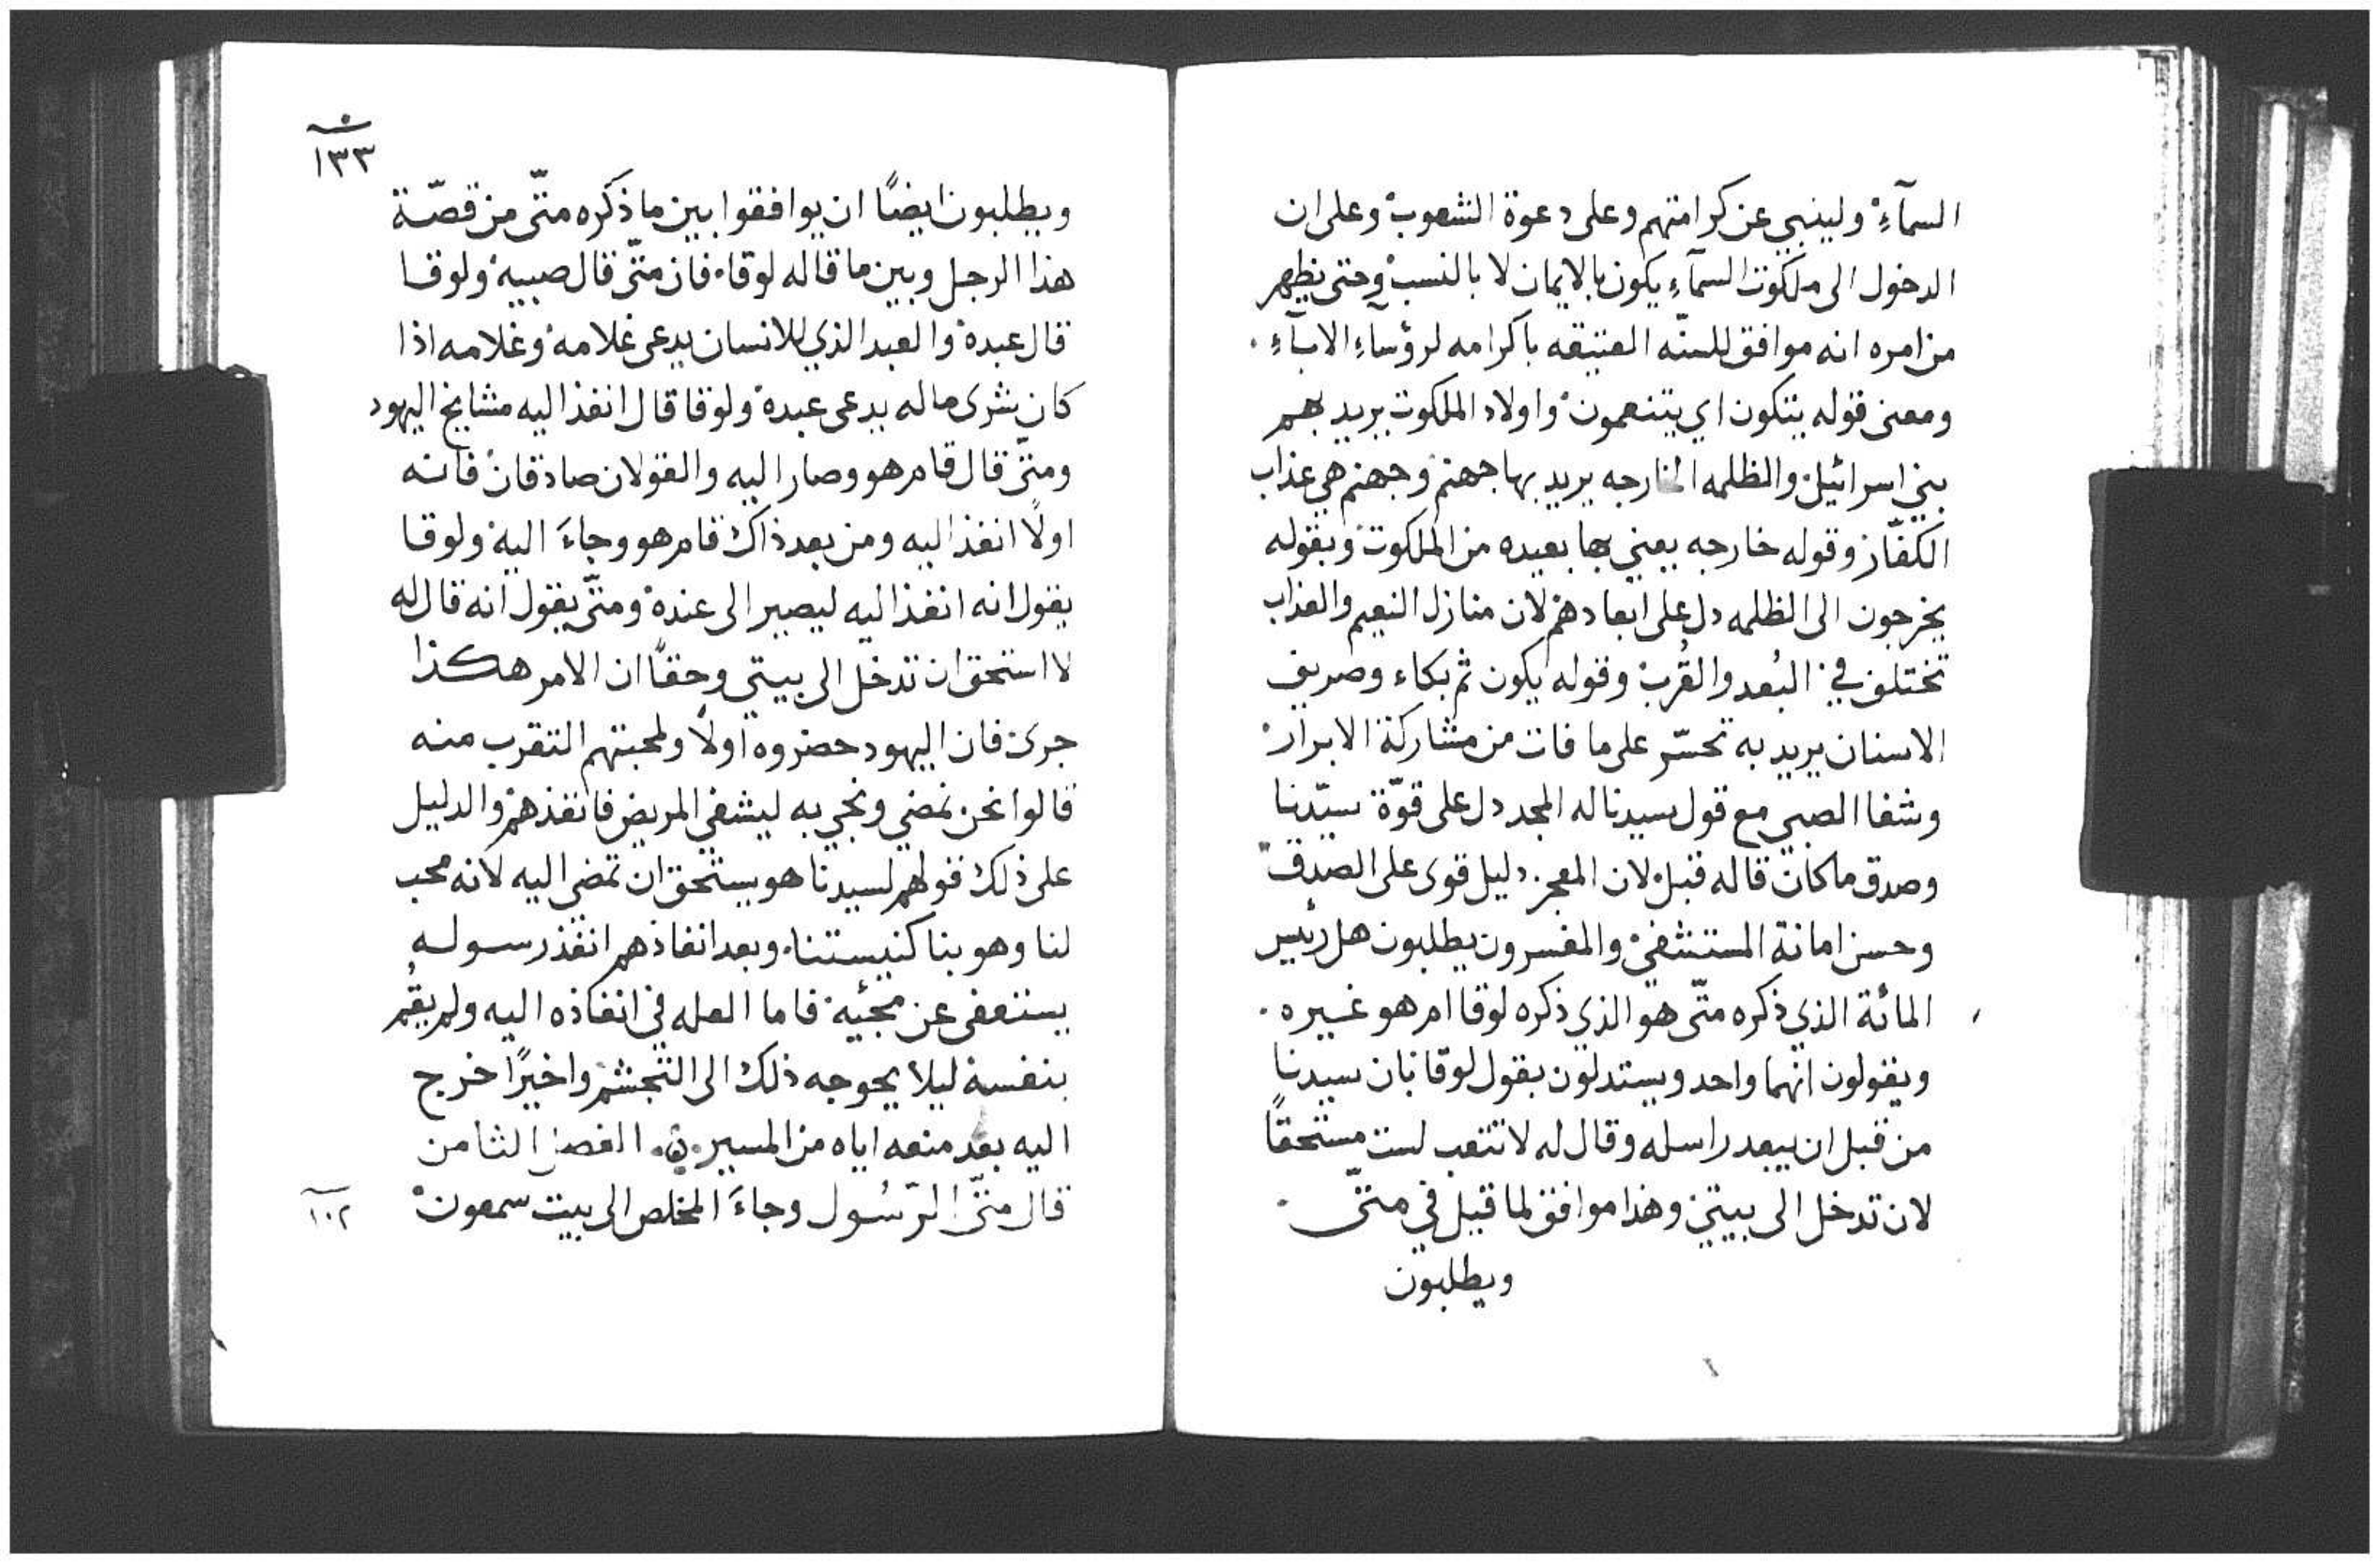 السمآءِ ولينبي عن كرامتهم وعلى دعوة الشعوب وعلى ان
الدخول الى ملكوت السمآءِ يكون بالايمان لا بالنسب وحتى يظهر
من امره انه موافق للسنّه العتيقه باكرامه لرؤسآءِ الابآءِ.
ومعنى قوله يتكون اي يتنعمون واولاد الملكوت يريد بهم
بني اسرائيل والظلمه الخارجه يريد بها جهنم وجهنم هي عذاب
الكفّار وقوله خارجه يعني بها بعيده من الملكوت وبقوله
يخرجون الى الظلمه دل على ابعادهم لان منازل النعيم والعذاب
تختلف في البُعد والقُرب وقوله يكون ثم بكاء وصريف
الاسنان يريد به تحسّر على ما فات من مشاركة الابرار
وشفا الصبي مع قول سيدنا له المجد دل على قوّة سيّدنا
وصدق ما كان قاله قبل لان المعجز دليل قوى على الصدق
وحسن امانة المستشفي والمفسرون يطلبون هل رئيس
المائة الذي ذكره متّى هو الذي ذكره لوقا ام هو غيره.
ويقولون انهما واحد ويستدلون بقول لوقا بان سيدنا
من قبل ان يبعد راسله وقال له لا تتعب لست مستحقًا
لان تدخل الى بيتي وهذا موافق لما قيل في متّى.
ويطلبون
١٣٣
ويطلبون ايضًا ان يوافقوا بين ما ذكره متّى من قصّة
هذا الرجل وبين ما قاله لوقا. فان متّى قال صبيه ولوقا
قال عبده والعبد الذي للانسان يدعى غلامه وغلامه اذا
كان شرى ماله يدعى عبده ولوقا قال انفذ اليه مشايخ اليهود
ومتّى قال قام هو وصار اليه والقولان صادقان فانه
اولًا انفذ اليه ومن بعد ذاك قام هو وجاءَ اليه ولوقا
يقول انه انفذ اليه ليصير الى عنده ومتّى يقول انه قال له
لا استحق ان تدخل الى بيتي وحقًا ان الامر هكذا
جرى فان اليهود حضروه اولًا ولمحبتهم التقرب منه
قالوا نحن نمضي ونجي به ليشفي المريض فانفذهم والدليل
على ذلك قولهم لسيدنا هو يستحق ان تمضى اليه لانه محب
لنا وهو بنا كنيستنا. وبعد انفاذهم انفذ رسوله
يستعفى عن مجئيه فاما العله في انفاذه اليه ولم يقُم
بنفسه ليلا يحوجه ذلك الى التجشم واخيرًا خرج
اليه بعد منعه اياه من المسير. الفصل الثامن
قال متّى الرّسُول وجاءَ المخلص الى بيت سمعون
١٠٢